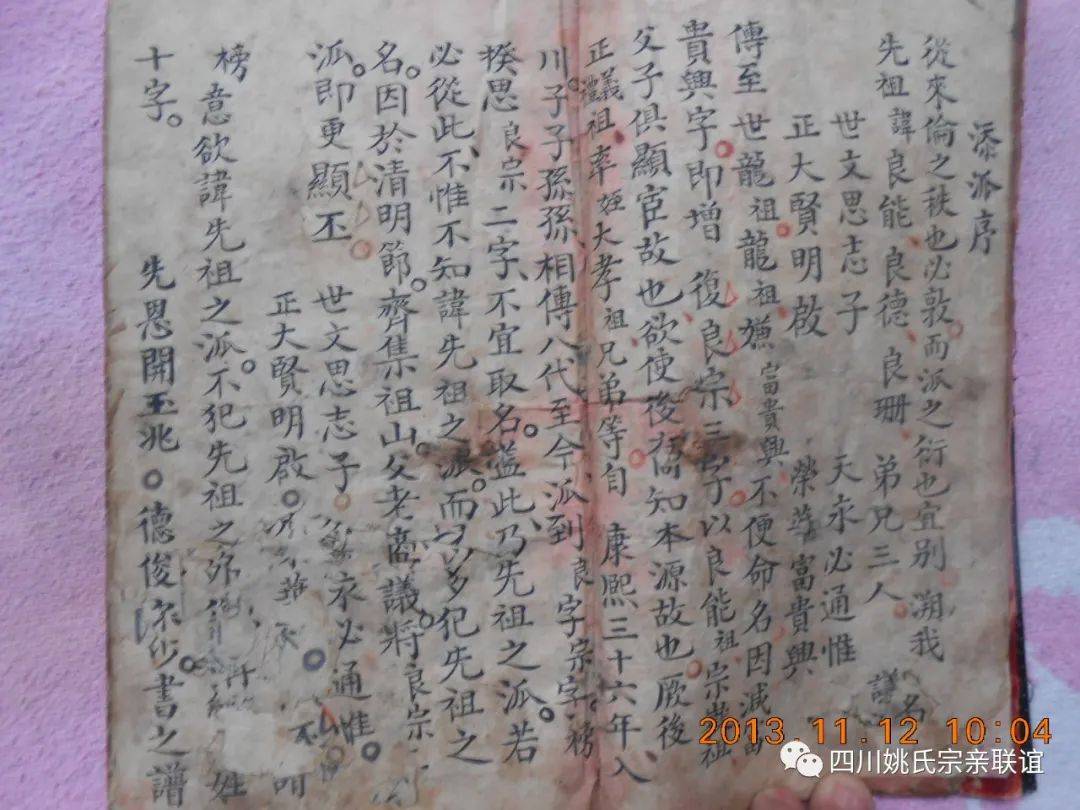 添派序
從來倫之秩也必敦而派之衍也宜別溯我
先祖諱良能良德良珊弟兄三人 名
世文思志子 天永必通惟
正大賢明啟 榮華富貴興
傳至世龍祖龍祖嫌富貴興不便命名因減
貴興字即增復良宗三字以良能祖宗
父子俱顯宦故也欲使後裔知本源故也厥後
正義禮祖率姪大孝祖兄弟等自康熙三十六年入
川子子孫孫相傳八代至今派到良字宗字榜
揆思良宗二字不宜取名蓋此乃先祖之派若
必從此不惟不知諱先祖之派而多犯先祖之
名因於清明節齊集祖山父老商議將良宗
派即更顯丕 世文思志子 永必通惟
正大賢明啟 華
榜意欲諱先祖之派不犯先祖之 姓
十字 先恩開玉兆 德俊 書之譜
2013.11.12 10:04
四川姚氏宗亲联谊